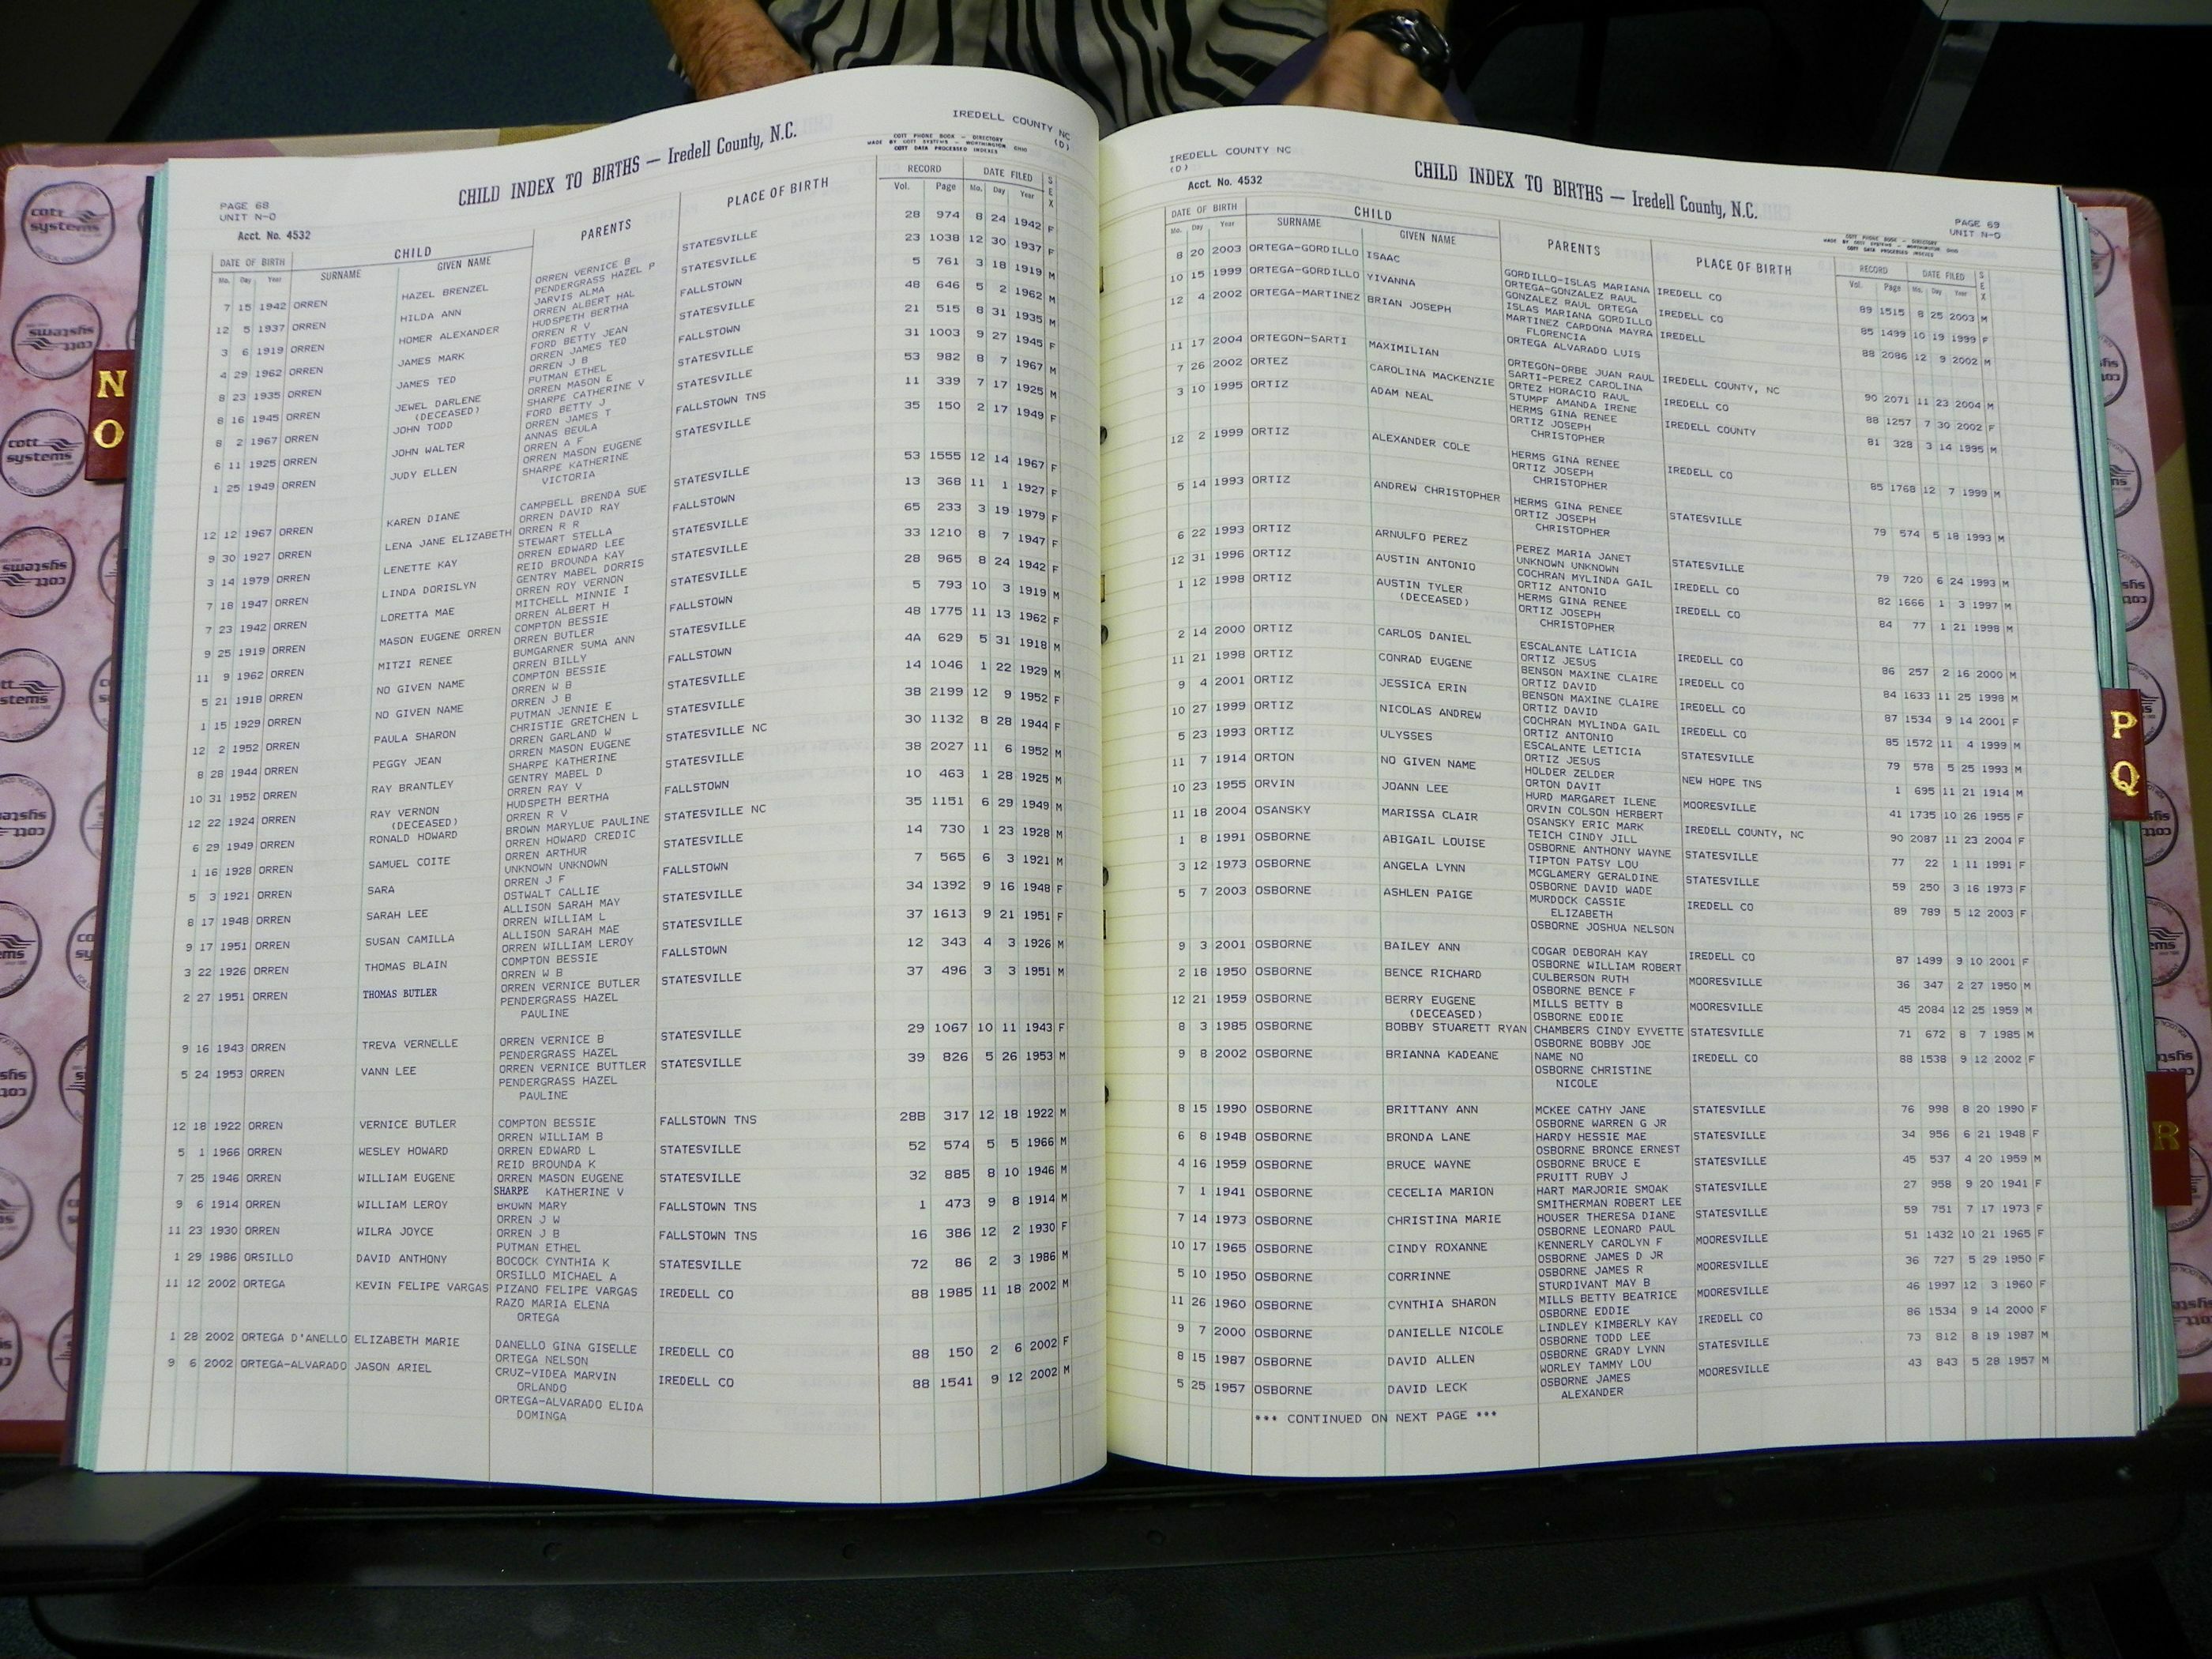 IREDELL COUNTY NC
(D)
CHILD INDEX TO BIRTHS — Iredell County, N.C.
COTT PHONE BOOK - DIRECTORY
MADE BY COTT SYSTEMS - WORTHINGTON OHIO
COTT DATA PROCESSED INDEXES
PAGE 68
UNIT N-O
Acct. No. 4532
DATE OF BIRTH CHILD PARENTS PLACE OF BIRTH RECORD DATE FILED SEX
Mo. Day Year SURNAME GIVEN NAME Vol. Page Mo. Day Year
7 15 1942 ORREN HAZEL BRENZEL ORREN VERNICE B STATESVILLE 28 974 8 24 1942 F
PENDERGRASS HAZEL P
12 5 1937 ORREN HILDA ANN JARVIS ALMA STATESVILLE 23 1038 12 30 1937 F
ORREN ALBERT HAL
3 6 1919 ORREN HOMER ALEXANDER HUDSPETH BERTHA FALLSTOWN 5 761 3 18 1919 M
ORREN R V
4 29 1962 ORREN JAMES MARK FORD BETTY JEAN STATESVILLE 48 646 5 2 1962 M
ORREN JAMES TED
8 23 1935 ORREN JAMES TED ORREN J B FALLSTOWN 21 515 8 31 1935 M
PUTMAN ETHEL
8 16 1945 ORREN JEWEL DARLENE ORREN MASON E STATESVILLE 31 1003 9 27 1945 F
(DECEASED) SHARPE CATHERINE V
8 2 1967 ORREN JOHN TODD FORD BETTY J STATESVILLE 53 982 8 7 1967 M
ORREN JAMES T
6 11 1925 ORREN JOHN WALTER ANNAS BEULA FALLSTOWN TNS 11 339 7 17 1925 M
ORREN A F
1 25 1949 ORREN JUDY ELLEN ORREN MASON EUGENE STATESVILLE 35 150 2 17 1949 F
SHARPE KATHERINE
VICTORIA
12 12 1967 ORREN KAREN DIANE CAMPBELL BRENDA SUE STATESVILLE 53 1555 12 14 1967 F
ORREN DAVID RAY
9 30 1927 ORREN LENA JANE ELIZABETH ORREN R R FALLSTOWN 13 368 11 1 1927 F
STEWART STELLA
3 14 1979 ORREN LENETTE KAY ORREN EDWARD LEE STATESVILLE 65 233 3 19 1979 F
REID BROUNDA KAY
7 18 1947 ORREN LINDA DORISLYN GENTRY MABEL DORRIS STATESVILLE 33 1210 8 7 1947 F
ORREN ROY VERNON
7 23 1942 ORREN LORETTA MAE MITCHELL MINNIE I STATESVILLE 28 965 8 24 1942 F
ORREN ALBERT H
9 25 1919 ORREN MASON EUGENE ORREN COMPTON BESSIE FALLSTOWN 5 793 10 3 1919 M
ORREN BUTLER
11 9 1962 ORREN MITZI RENEE BUMGARNER SUMA ANN STATESVILLE 48 1775 11 13 1962 F
ORREN BILLY
5 21 1918 ORREN NO GIVEN NAME COMPTON BESSIE FALLSTOWN 4A 629 5 31 1918 M
ORREN W B
1 15 1929 ORREN NO GIVEN NAME ORREN J B STATESVILLE 14 1046 1 22 1929 M
PUTMAN JENNIE E
12 2 1952 ORREN PAULA SHARON CHRISTIE GRETCHEN L STATESVILLE 38 2199 12 9 1952 F
ORREN GARLAND W
8 28 1944 ORREN PEGGY JEAN ORREN MASON EUGENE STATESVILLE NC 30 1132 8 28 1944 F
SHARPE KATHERINE
10 31 1952 ORREN RAY BRANTLEY GENTRY MABEL D STATESVILLE 38 2027 11 6 1952 M
ORREN RAY V
12 22 1924 ORREN RAY VERNON HUDSPETH BERTHA FALLSTOWN 10 463 1 28 1925 M
(DECEASED) ORREN R V
6 29 1949 ORREN RONALD HOWARD BROWN MARYLUE PAULINE STATESVILLE NC 35 1151 6 29 1949 M
ORREN HOWARD CREDIC
1 16 1928 ORREN SAMUEL COITE ORREN ARTHUR STATESVILLE 14 730 1 23 1928 M
UNKNOWN UNKNOWN
5 3 1921 ORREN SARA ORREN J F FALLSTOWN 7 565 6 3 1921 M
OSTWALT CALLIE
8 17 1948 ORREN SARAH LEE ALLISON SARAH MAY STATESVILLE 34 1392 9 16 1948 F
ORREN WILLIAM L
9 17 1951 ORREN SUSAN CAMILLA ALLISON SARAH MAE STATESVILLE 37 1613 9 21 1951 F
ORREN WILLIAM LEROY
3 22 1926 ORREN THOMAS BLAIN COMPTON BESSIE FALLSTOWN 12 343 4 3 1926 M
ORREN W B
2 27 1951 ORREN THOMAS BUTLER ORREN VERNICE BUTLER STATESVILLE 37 496 3 3 1951 M
PENDERGRASS HAZEL
PAULINE
9 16 1943 ORREN TREVA VERNELLE ORREN VERNICE B STATESVILLE 29 1067 10 11 1943 F
PENDERGRASS HAZEL
5 24 1953 ORREN VANN LEE ORREN VERNICE BUTTLER STATESVILLE 39 826 5 26 1953 M
PENDERGRASS HAZEL
PAULINE
12 18 1922 ORREN VERNICE BUTLER COMPTON BESSIE FALLSTOWN TNS 28B 317 12 18 1922 M
ORREN WILLIAM B
5 1 1966 ORREN WESLEY HOWARD ORREN EDWARD L STATESVILLE 52 574 5 5 1966 M
REID BROUNDA K
7 25 1946 ORREN WILLIAM EUGENE ORREN MASON EUGENE STATESVILLE 32 885 8 10 1946 M
SHARPE KATHERINE V
9 6 1914 ORREN WILLIAM LEROY BROWN MARY FALLSTOWN TNS 1 473 9 8 1914 M
ORREN J W
11 23 1930 ORREN WILRA JOYCE ORREN J B FALLSTOWN TNS 16 386 12 2 1930 F
PUTMAN ETHEL
1 29 1986 ORSILLO DAVID ANTHONY BOCOCK CYNTHIA K STATESVILLE 72 86 2 3 1986 M
ORSILLO MICHAEL A
11 12 2002 ORTEGA KEVIN FELIPE VARGAS PIZANO FELIPE VARGAS IREDELL CO 88 1985 11 18 2002 M
RAZO MARIA ELENA
ORTEGA
1 28 2002 ORTEGA D'ANELLO ELIZABETH MARIE DANELLO GINA GISELLE IREDELL CO 88 150 2 6 2002 F
ORTEGA NELSON
9 6 2002 ORTEGA-ALVARADO JASON ARIEL CRUZ-VIDEA MARVIN IREDELL CO 88 1541 9 12 2002 M
ORLANDO
ORTEGA-ALVARADO ELIDA
DOMINGA
IREDELL COUNTY NC
(D)
Acct. No. 4532
CHILD INDEX TO BIRTHS — Iredell County, N.C.
PAGE 69
UNIT N-O
COTT PHONE BOOK - DIRECTORY
MADE BY COTT SYSTEMS - WORTHINGTON OHIO
COTT DATA PROCESSED INDEXES
DATE OF BIRTH CHILD PARENTS PLACE OF BIRTH RECORD DATE FILED SEX
Mo. Day Year SURNAME GIVEN NAME Vol. Page Mo. Day Year
8 20 2003 ORTEGA-GORDILLO ISAAC GORDILLO-ISLAS MARIANA IREDELL CO 89 1515 8 25 2003 M
ORTEGA-GONZALEZ RAUL
10 15 1999 ORTEGA-GORDILLO YIVANNA GONZALEZ RAUL ORTEGA IREDELL CO 85 1499 10 19 1999 F
ISLAS MARIANA GORDILLO
12 4 2002 ORTEGA-MARTINEZ BRIAN JOSEPH MARTINEZ CARDONA MAYRA IREDELL 88 2086 12 9 2002 M
FLORENCIA
ORTEGA ALVARADO LUIS
11 17 2004 ORTEGON-SARTI MAXIMILIAN ORTEGON-ORBE JUAN RAUL IREDELL COUNTY, NC 90 2071 11 23 2004 M
SARTI-PEREZ CAROLINA
7 26 2002 ORTEZ CAROLINA MACKENZIE ORTEZ HORACIO RAUL IREDELL CO 88 1257 7 30 2002 F
STUMPF AMANDA IRENE
3 10 1995 ORTIZ ADAM NEAL HERMS GINA RENEE IREDELL COUNTY 81 328 3 14 1995 M
ORTIZ JOSEPH
CHRISTOPHER
12 2 1999 ORTIZ ALEXANDER COLE HERMS GINA RENEE IREDELL CO 85 1768 12 7 1999 M
ORTIZ JOSEPH
CHRISTOPHER
5 14 1993 ORTIZ ANDREW CHRISTOPHER HERMS GINA RENEE STATESVILLE 79 574 5 18 1993 M
ORTIZ JOSEPH
CHRISTOPHER
6 22 1993 ORTIZ ARNULFO PEREZ PEREZ MARIA JANET STATESVILLE 79 720 6 24 1993 M
UNKNOWN UNKNOWN
12 31 1996 ORTIZ AUSTIN ANTONIO COCHRAN MYLINDA GAIL IREDELL CO 82 1666 1 3 1997 M
ORTIZ ANTONIO
1 12 1998 ORTIZ AUSTIN TYLER HERMS GINA RENEE IREDELL CO 84 77 1 21 1998 M
(DECEASED) ORTIZ JOSEPH
CHRISTOPHER
2 14 2000 ORTIZ CARLOS DANIEL ESCALANTE LATICIA IREDELL CO 86 257 2 16 2000 M
ORTIZ JESUS
11 21 1998 ORTIZ CONRAD EUGENE BENSON MAXINE CLAIRE IREDELL CO 84 1633 11 25 1998 M
ORTIZ DAVID
9 4 2001 ORTIZ JESSICA ERIN BENSON MAXINE CLAIRE IREDELL CO 87 1534 9 14 2001 F
ORTIZ DAVID
10 27 1999 ORTIZ NICOLAS ANDREW COCHRAN MYLINDA GAIL IREDELL CO 85 1572 11 4 1999 M
ORTIZ ANTONIO
5 23 1993 ORTIZ ULYSSES ESCALANTE LETICIA STATESVILLE 79 578 5 25 1993 M
ORTIZ JESUS
11 7 1914 ORTON NO GIVEN NAME HOLDER ZELDER NEW HOPE TNS 1 695 11 21 1914 M
ORTON DAVIT
10 23 1955 ORVIN JOANN LEE HURD MARGARET ILENE MOORESVILLE 41 1735 10 26 1955 F
ORVIN COLSON HERBERT
11 18 2004 OSANSKY MARISSA CLAIR OSANSKY ERIC MARK IREDELL COUNTY, NC 90 2087 11 23 2004 F
TEICH CINDY JILL
1 8 1991 OSBORNE ABIGAIL LOUISE OSBORNE ANTHONY WAYNE STATESVILLE 77 22 1 11 1991 F
TIPTON PATSY LOU
3 12 1973 OSBORNE ANGELA LYNN MCGLAMERY GERALDINE STATESVILLE 59 250 3 16 1973 F
OSBORNE DAVID WADE
5 7 2003 OSBORNE ASHLEN PAIGE MURDOCK CASSIE IREDELL CO 89 789 5 12 2003 F
ELIZABETH
OSBORNE JOSHUA NELSON
9 3 2001 OSBORNE BAILEY ANN COGAR DEBORAH KAY IREDELL CO 87 1499 9 10 2001 F
OSBORNE WILLIAM ROBERT
2 18 1950 OSBORNE BENCE RICHARD CULBERSON RUTH MOORESVILLE 36 347 2 27 1950 M
OSBORNE BENCE F
12 21 1959 OSBORNE BERRY EUGENE MILLS BETTY B MOORESVILLE 45 2084 12 25 1959 M
(DECEASED) OSBORNE EDDIE
8 3 1985 OSBORNE BOBBY STUARETT RYAN CHAMBERS CINDY EYVETTE STATESVILLE 71 672 8 7 1985 M
OSBORNE BOBBY JOE
9 8 2002 OSBORNE BRIANNA KADEANE NAME NO IREDELL CO 88 1538 9 12 2002 F
OSBORNE CHRISTINE
NICOLE
8 15 1990 OSBORNE BRITTANY ANN MCKEE CATHY JANE STATESVILLE 76 998 8 20 1990 F
OSBORNE WARREN G JR
6 8 1948 OSBORNE BRONDA LANE HARDY HESSIE MAE STATESVILLE 34 956 6 21 1948 F
OSBORNE BRONCE ERNEST
4 16 1959 OSBORNE BRUCE WAYNE OSBORNE BRUCE E STATESVILLE 45 537 4 20 1959 M
PRUITT RUBY J
7 1 1941 OSBORNE CECELIA MARION HART MARJORIE SMOAK STATESVILLE 27 958 9 20 1941 F
SMITHERMAN ROBERT LEE
7 14 1973 OSBORNE CHRISTINA MARIE HOUSER THERESA DIANE STATESVILLE 59 751 7 17 1973 F
OSBORNE LEONARD PAUL
10 17 1965 OSBORNE CINDY ROXANNE KENNERLY CAROLYN F MOORESVILLE 51 1432 10 21 1965 F
OSBORNE JAMES D JR
5 10 1950 OSBORNE CORRINNE OSBORNE JAMES R MOORESVILLE 36 727 5 29 1950 F
STURDIVANT MAY B
11 26 1960 OSBORNE CYNTHIA SHARON MILLS BETTY BEATRICE MOORESVILLE 46 1997 12 3 1960 F
OSBORNE EDDIE
9 7 2000 OSBORNE DANIELLE NICOLE LINDLEY KIMBERLY KAY IREDELL CO 86 1534 9 14 2000 F
OSBORNE TODD LEE
8 15 1987 OSBORNE DAVID ALLEN OSBORNE GRADY LYNN STATESVILLE 73 812 8 19 1987 M
WORLEY TAMMY LOU
5 25 1957 OSBORNE DAVID LECK OSBORNE JAMES MOORESVILLE 43 843 5 28 1957 M
ALEXANDER
*** CONTINUED ON NEXT PAGE ***
N
O
P
Q
R
cott
systems